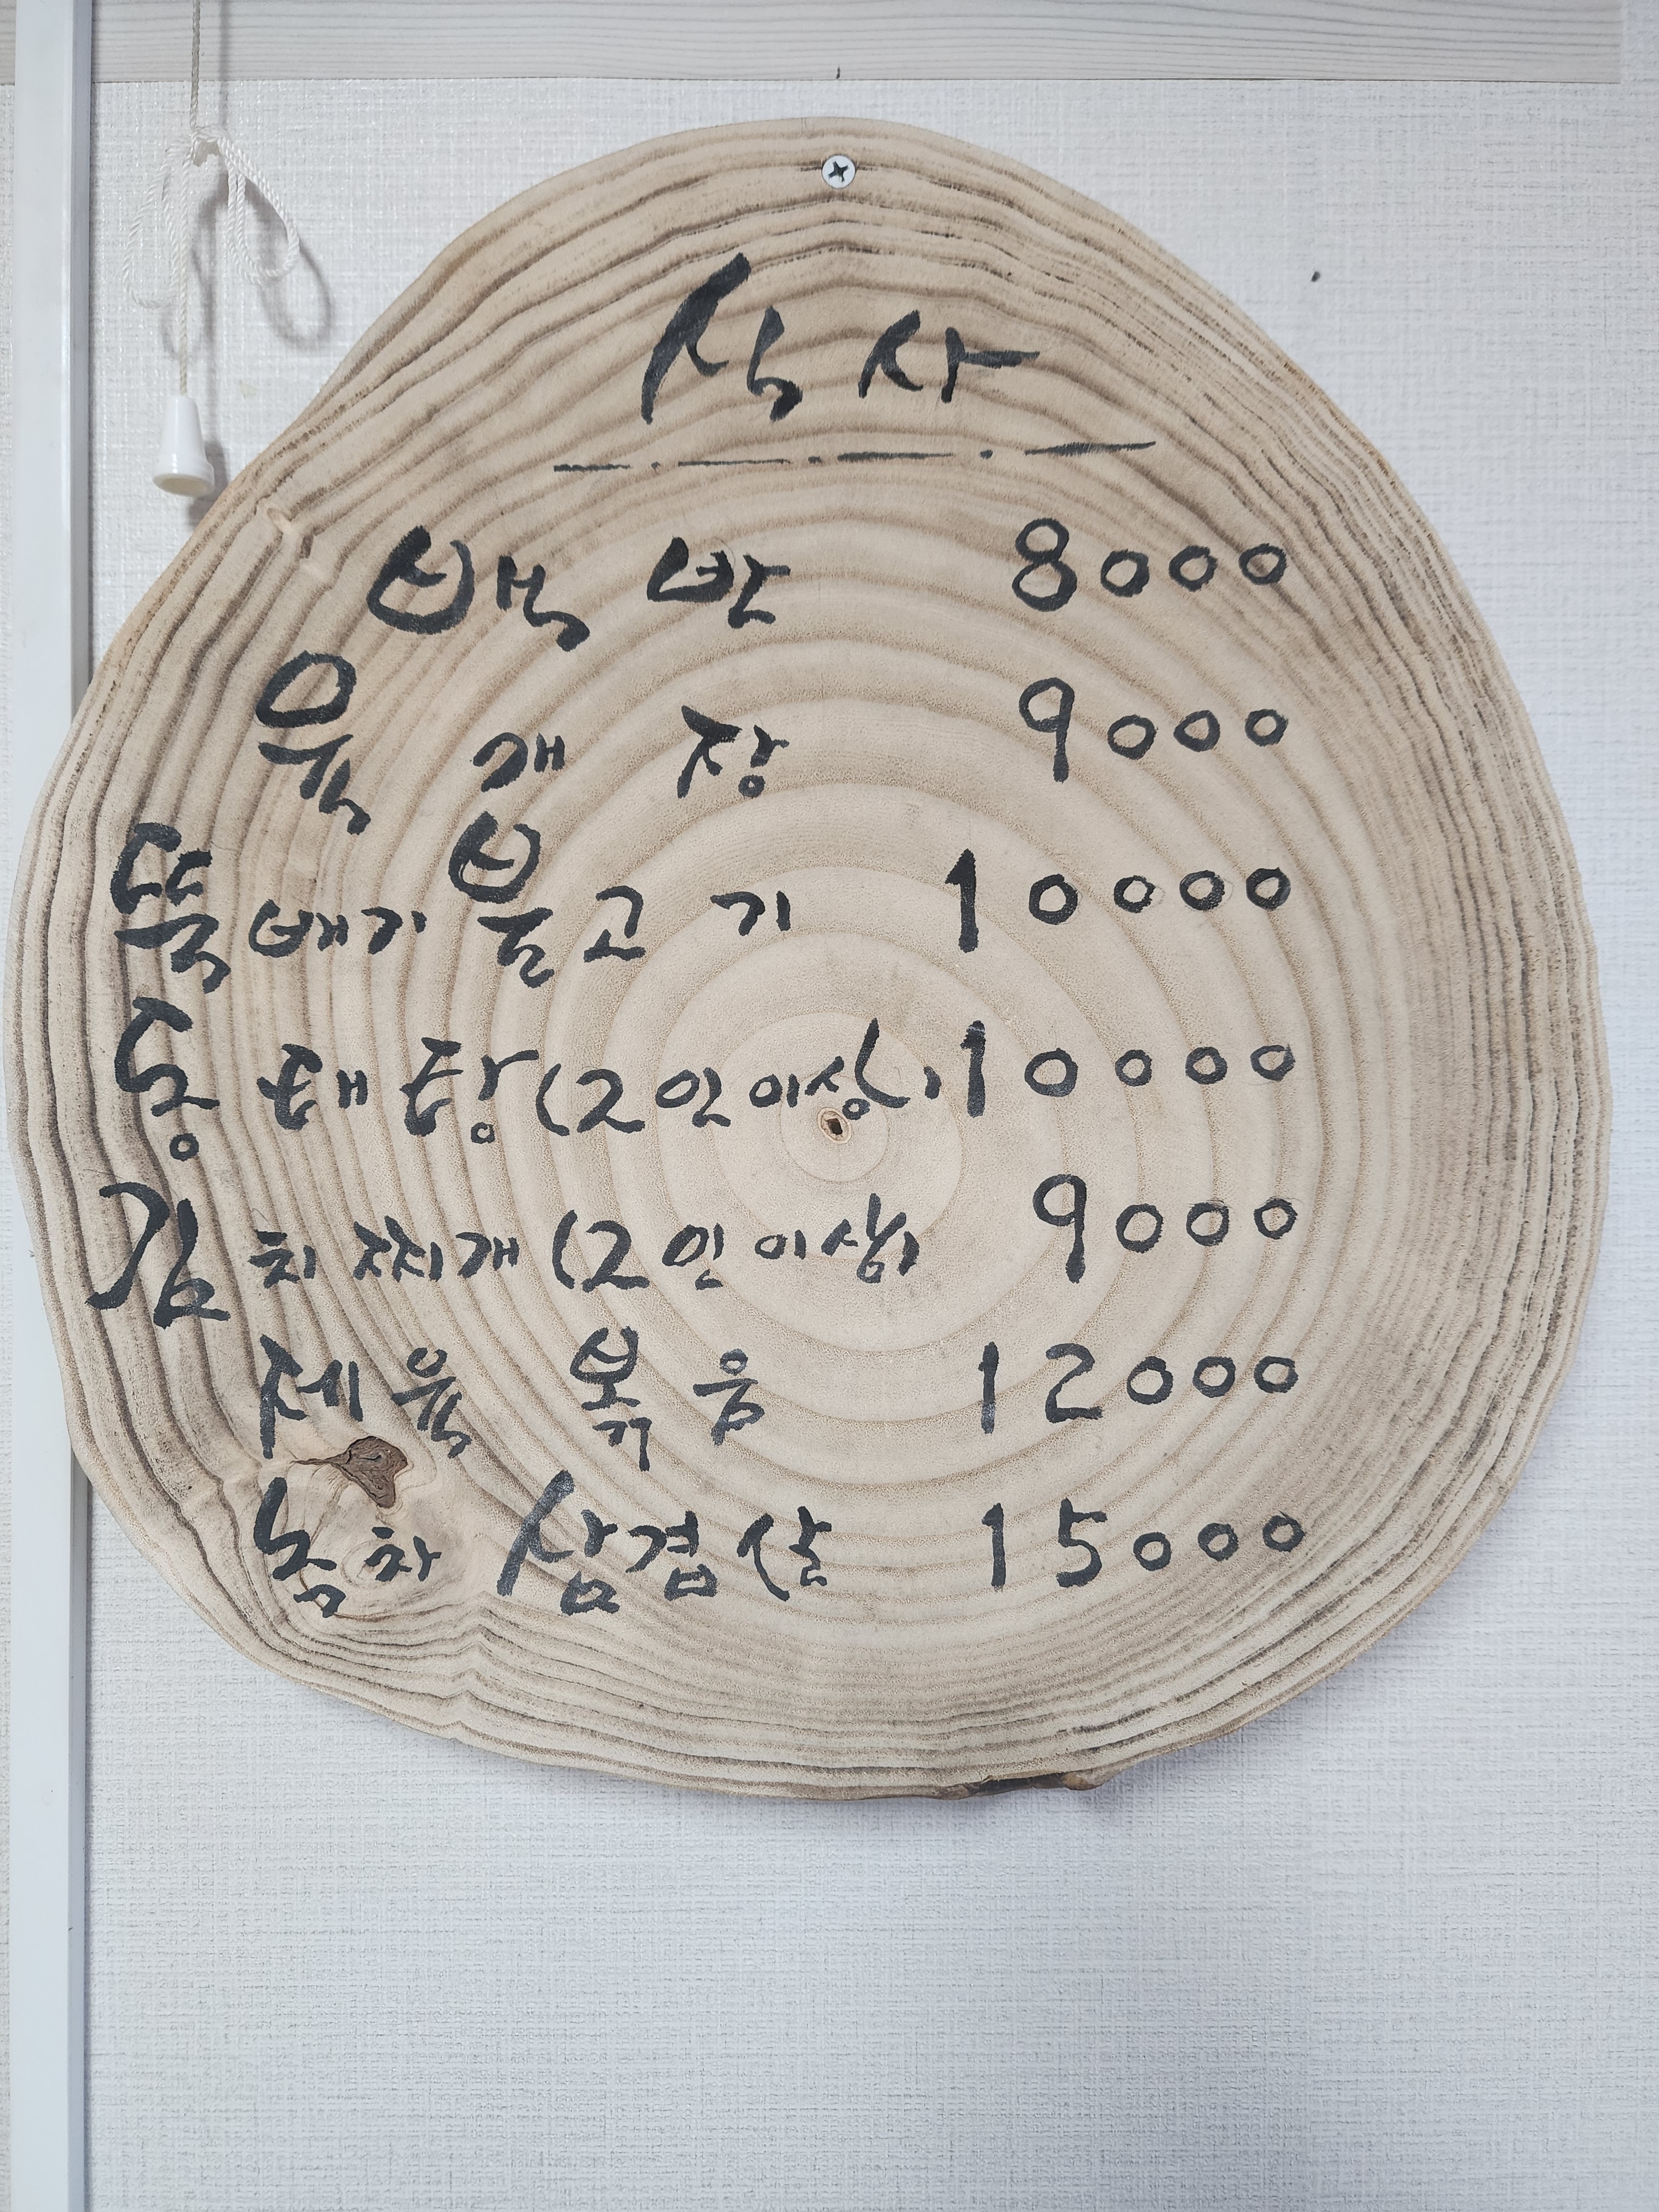 식사
백반 8000
육개장 9000
뚝배기불고기 10000
동태탕(2인이상) 10000
김치찌개(2인이상) 9000
제육볶음 12000
녹차삼겹살 15000